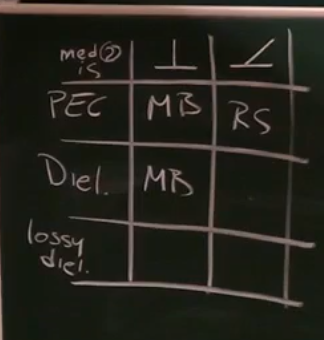 med ② ⊥ ∠
is
PEC MB RS
Diel. MB
lossy
diel.